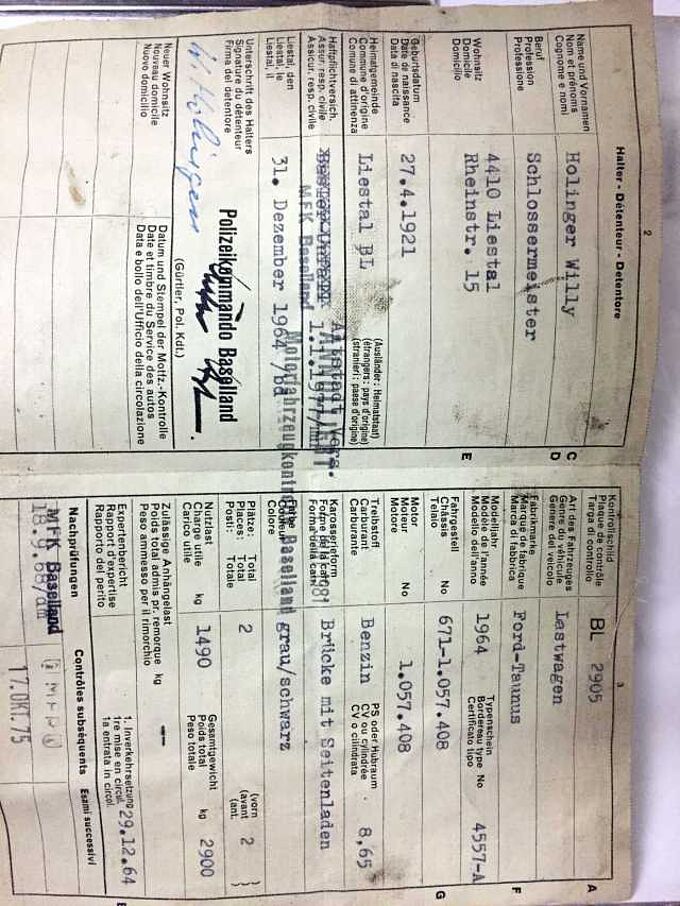 2
Halter - Détenteur - Detentore
Name und Vornamen
Nom et prénoms
Cognome e nomi
Holinger Willy
C
Beruf
Profession
Professione
Schlossermeister
D
Wohnsitz
Domicile
Domicilio
4410 Liestal
Rheinstr. 15
E
Geburtsdatum
Date de naissance
Data di nascita
27.4.1921
Heimatgemeinde
Commune d'origine
Comune di attinenza
Liestal BL
(Ausländer: Heimatstaat)
(étrangers: pays d'origine)
(stranieri: paese d'origine)
Haftpflichtversich.
Assur. resp. civile
Assicur. resp. civile
Altstadt Vers.
MFK Baselland 1.1.1977/mm
Liestal, den
Liestal, le
Liestal, il
31. Dezember 1964/bd
Motorfahrzeugkontrolle Baselland
Unterschrift des Halters
Signature du détenteur
Firma del detentore
W Holinger
Polizeikommando Baselland
(Gürtler, Pol. Kdt.)
Neuer Wohnsitz
Nouveau domicile
Nuovo domicilio
Datum und Stempel der Motfz.-Kontrolle
Date et timbre du Service des autos
Data e bollo dell'Ufficio della circolazione
3
Kontrollschild
Plaque de contrôle
Targa di controllo
BL 2905
A
Art des Fahrzeuges
Genre du véhicule
Genere del veicolo
Lastwagen
Fabrikmarke
Marque de fabrique
Marca di fabbrica
Ford-Taunus
F
Modelljahr
Modèle de l'année
Modello dell'anno
1964
Typenschein
Bordereau type No
Certificato tipo
4557-A
Fahrgestell
Châssis No
Telaio
671-1.057.408
G
Motor
Moteur No
Motore
1.057.408
Treibstoff
Carburant
Carburante
Benzin
PS oder Hubraum
CV ou cylindrée
CV o cilindrata
8,65
Karosserieform
Forme de la carr.
Forma della carr.
Brücke mit Seitenladen
Farbe
Couleur
Colore
grau/schwarz
Plätze: Total
Places: Total
Posti: Totale
2
(vorn
(avant
(ant.
2
Nutzlast
Charge utile kg
Carico utile
1490
Gesamtgewicht
Poids total kg
Peso totale
2900
Zulässige Anhängelast
Poids total admis pr. remorque kg
Peso ammesso per il rimorchio
—
Expertenbericht
Rapport d'expertise
Rapporto del perito
1. Inverkehrsetzung
1re mise en circul.
1a entrata in circol.
29.12.64
Nachprüfungen Contrôles subséquents Esami successivi
MFK Baselland
17.OKT.75